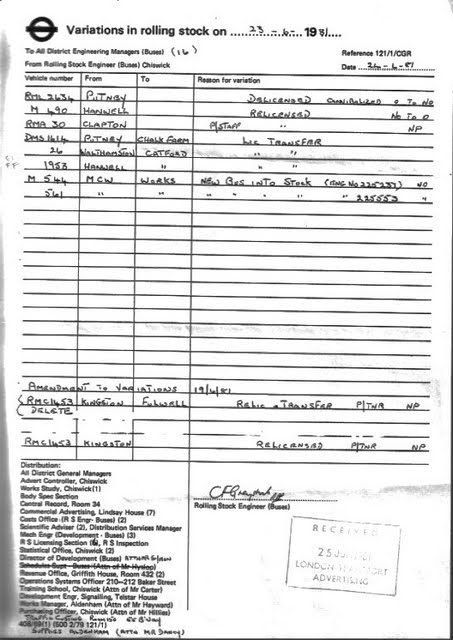 Variations in rolling stock on 23 - 6 - 1981.
To All District Engineering Managers (Buses) (16)
Reference 121/1/CGR
From Rolling Stock Engineer (Buses) Chiswick
Date 24-6-81
Vehicle number From To Reason for variation
RML 2634 PUTNEY DELICENSED CANNIBALIZED O TO NO
M 490 HANWELL RELICENSED NO TO O
RMA 30 CLAPTON P/STAFF " NP
DMS 1614 PUTNEY CHALK FARM LIC TRANSFER
26 WALTHAMSTOW CATFORD " "
1953 HANWELL " " "
M 544 MCW WORKS NEW BUS INTO STOCK (ENG NO 225237) NO
561 " " " " " " " 225553 "
AMENDMENT TO VARIATIONS 19/6/81
RMC1453 KINGSTON FULWELL RELIC + TRANSFER P/TNR NP
(DELETE
RMC1453 KINGSTON RELICENSED P/TNR NP
Distribution:
All District General Managers
Advert Controller, Chiswick
Works Study, Chiswick (1)
Body Spec Section
Central Record, Room 34
Commercial Advertising, Lindsay House (7)
Costs Office (R S Engr- Buses) (2)
Scientific Adviser (2), Distribution Services Manager
Mech Engr (Development - Buses) (3)
R S Licensing Section (6), R S Inspection
Statistical Office, Chiswick (2)
Director of Development (Buses)
Schedules Supt - Buses (Attn of Mr Hyslop)
Revenue Office, Griffith House, Room 432 (2)
Operations Systems Officer 210-212 Baker Street
Training School, Chiswick (Attn of Mr Carter)
Development Engr, Signalling, Telstar House
Works Manager, Aldenham (Attn of Mr Hayward)
Purchasing Officer, Chiswick (Attn of Mr Hillier)
55 B'WAY
408/59(1) (500 2/79 121/1)
ALDENHAM (ATTN MR DARCY)
Rolling Stock Engineer (Buses)
RECEIVED
25 JUN 1981
LONDON TRANSPORT
ADVERTISING